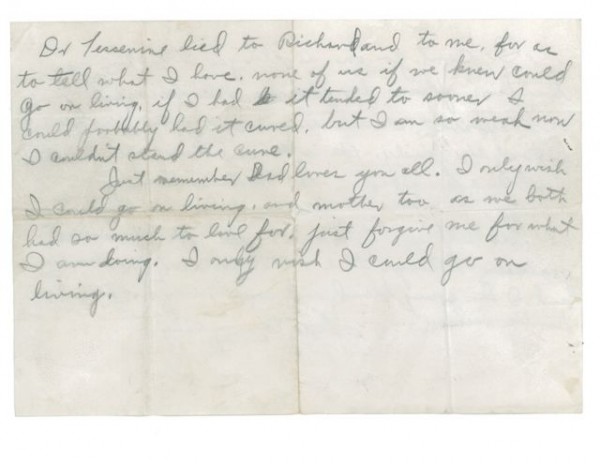 Dr Lessenine lied to Richard and to me, for as
to tell what I have. none of us if we knew could
go on living, if I had it tended to sooner I
could probably had it cured, but I am so weak now
I couldn't stand the cure.
Just remember Dad loves you all. I only wish
I could go on living, and mother too, as we both
had so much to live for, just forgive me for what
I am doing. I only wish I could go on
living.